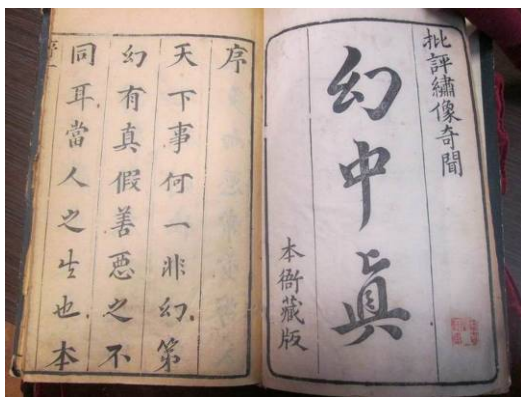 批評繡像奇聞
幻中眞
本衙藏版
序
天下事何一非幻第
幻有真假善惡之不
同耳當人之生也本